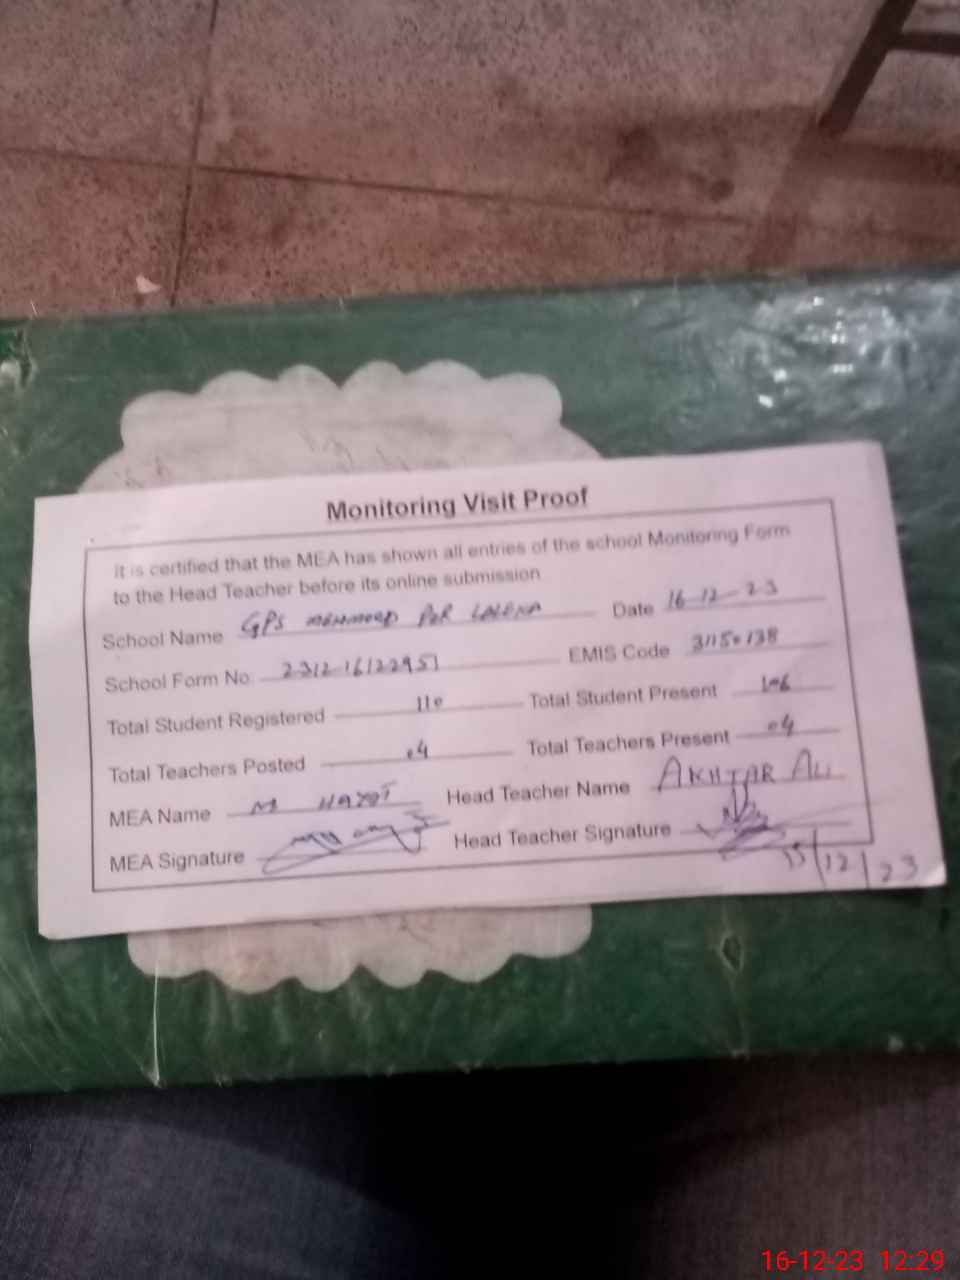 Monitoring Visit Proof
It is certified that the MEA has shown all entries of the school Monitoring Form
to the Head Teacher before its online submission
School Name GPS MEHMOOD PUR LALEKA Date 16-12-23
School Form No 2312-16122951 EMIS Code 31150138
Total Student Registered 110 Total Student Present 106
Total Teachers Posted 04 Total Teachers Present 04
MEA Name M HAYAT Head Teacher Name AKHTAR ALI
MEA Signature Head Teacher Signature
15/12/23
16-12-23 12:29